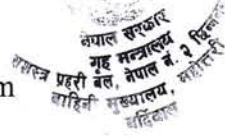 नेपाल सरकार
गृह मन्त्रालय
सशस्त्र प्रहरी बल, नेपाल नं. २
वाहिनी मुख्यालय, महोत्तरी
बर्दिबास
m